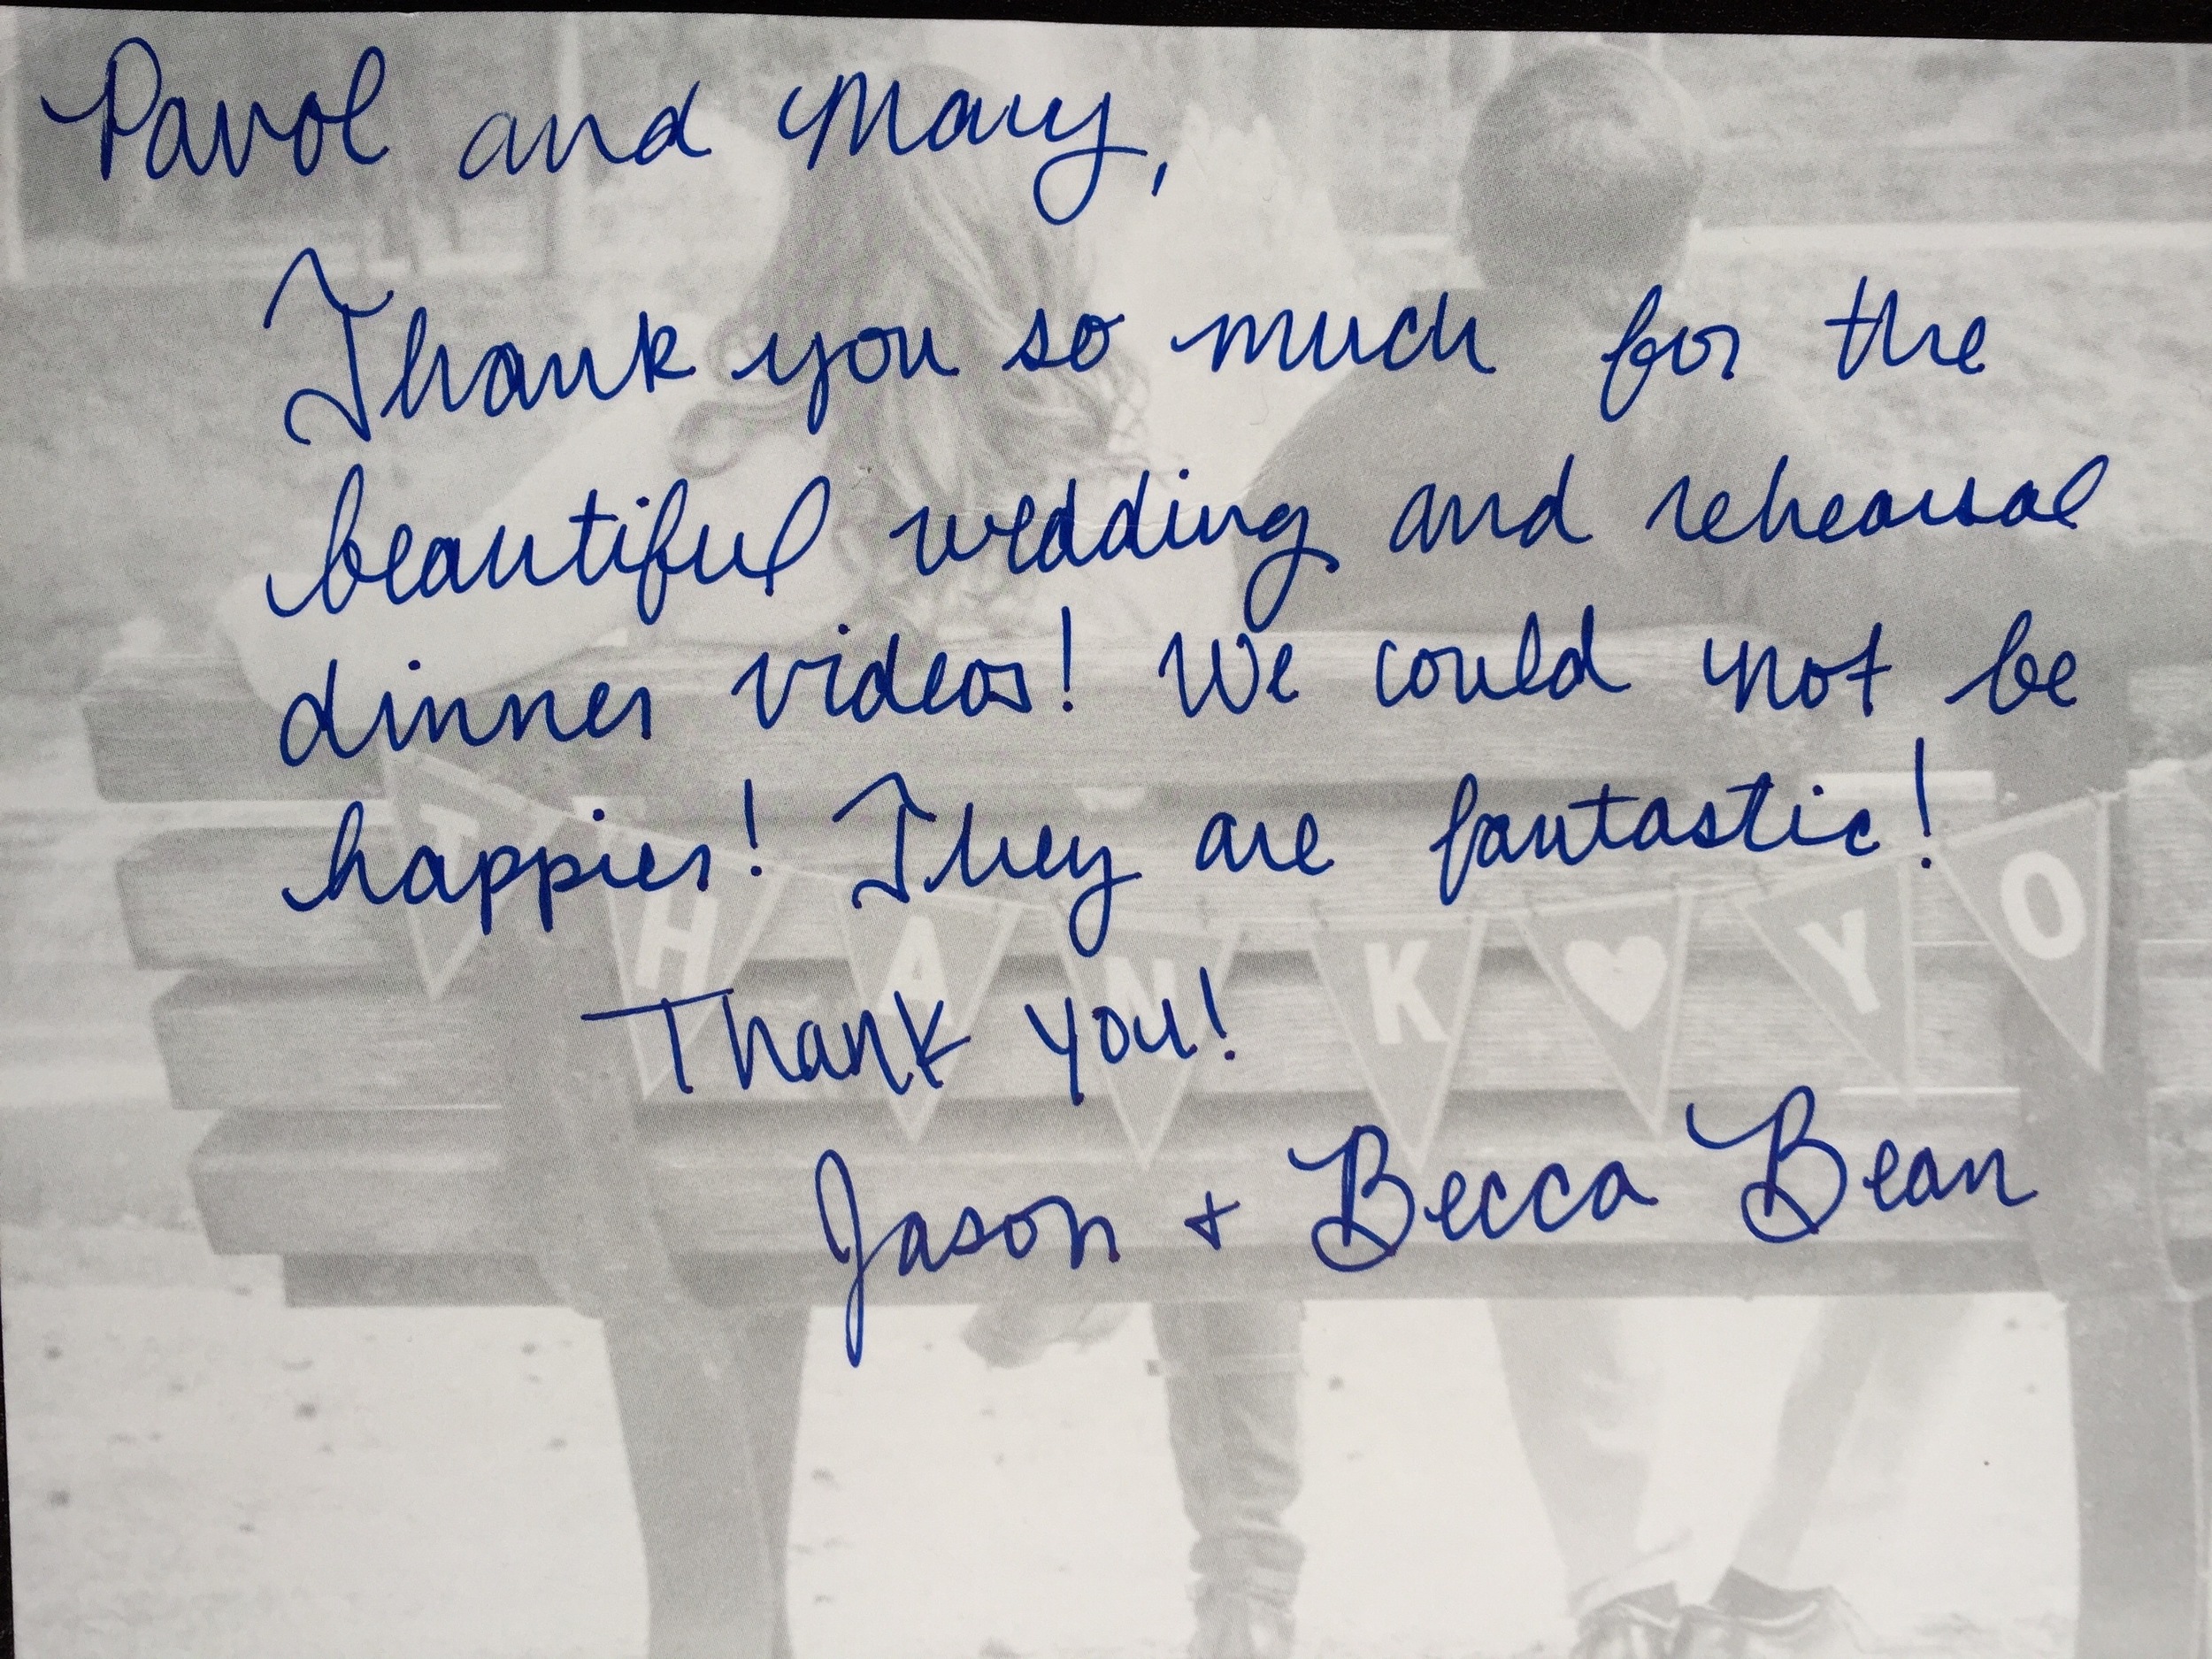 Pavol and Mary,
Thank you so much for the
beautiful wedding and rehearsal
dinner videos! We could not be
happier! They are fantastic!
THANK ♥ YO
Thank you!
Jason + Becca Bean